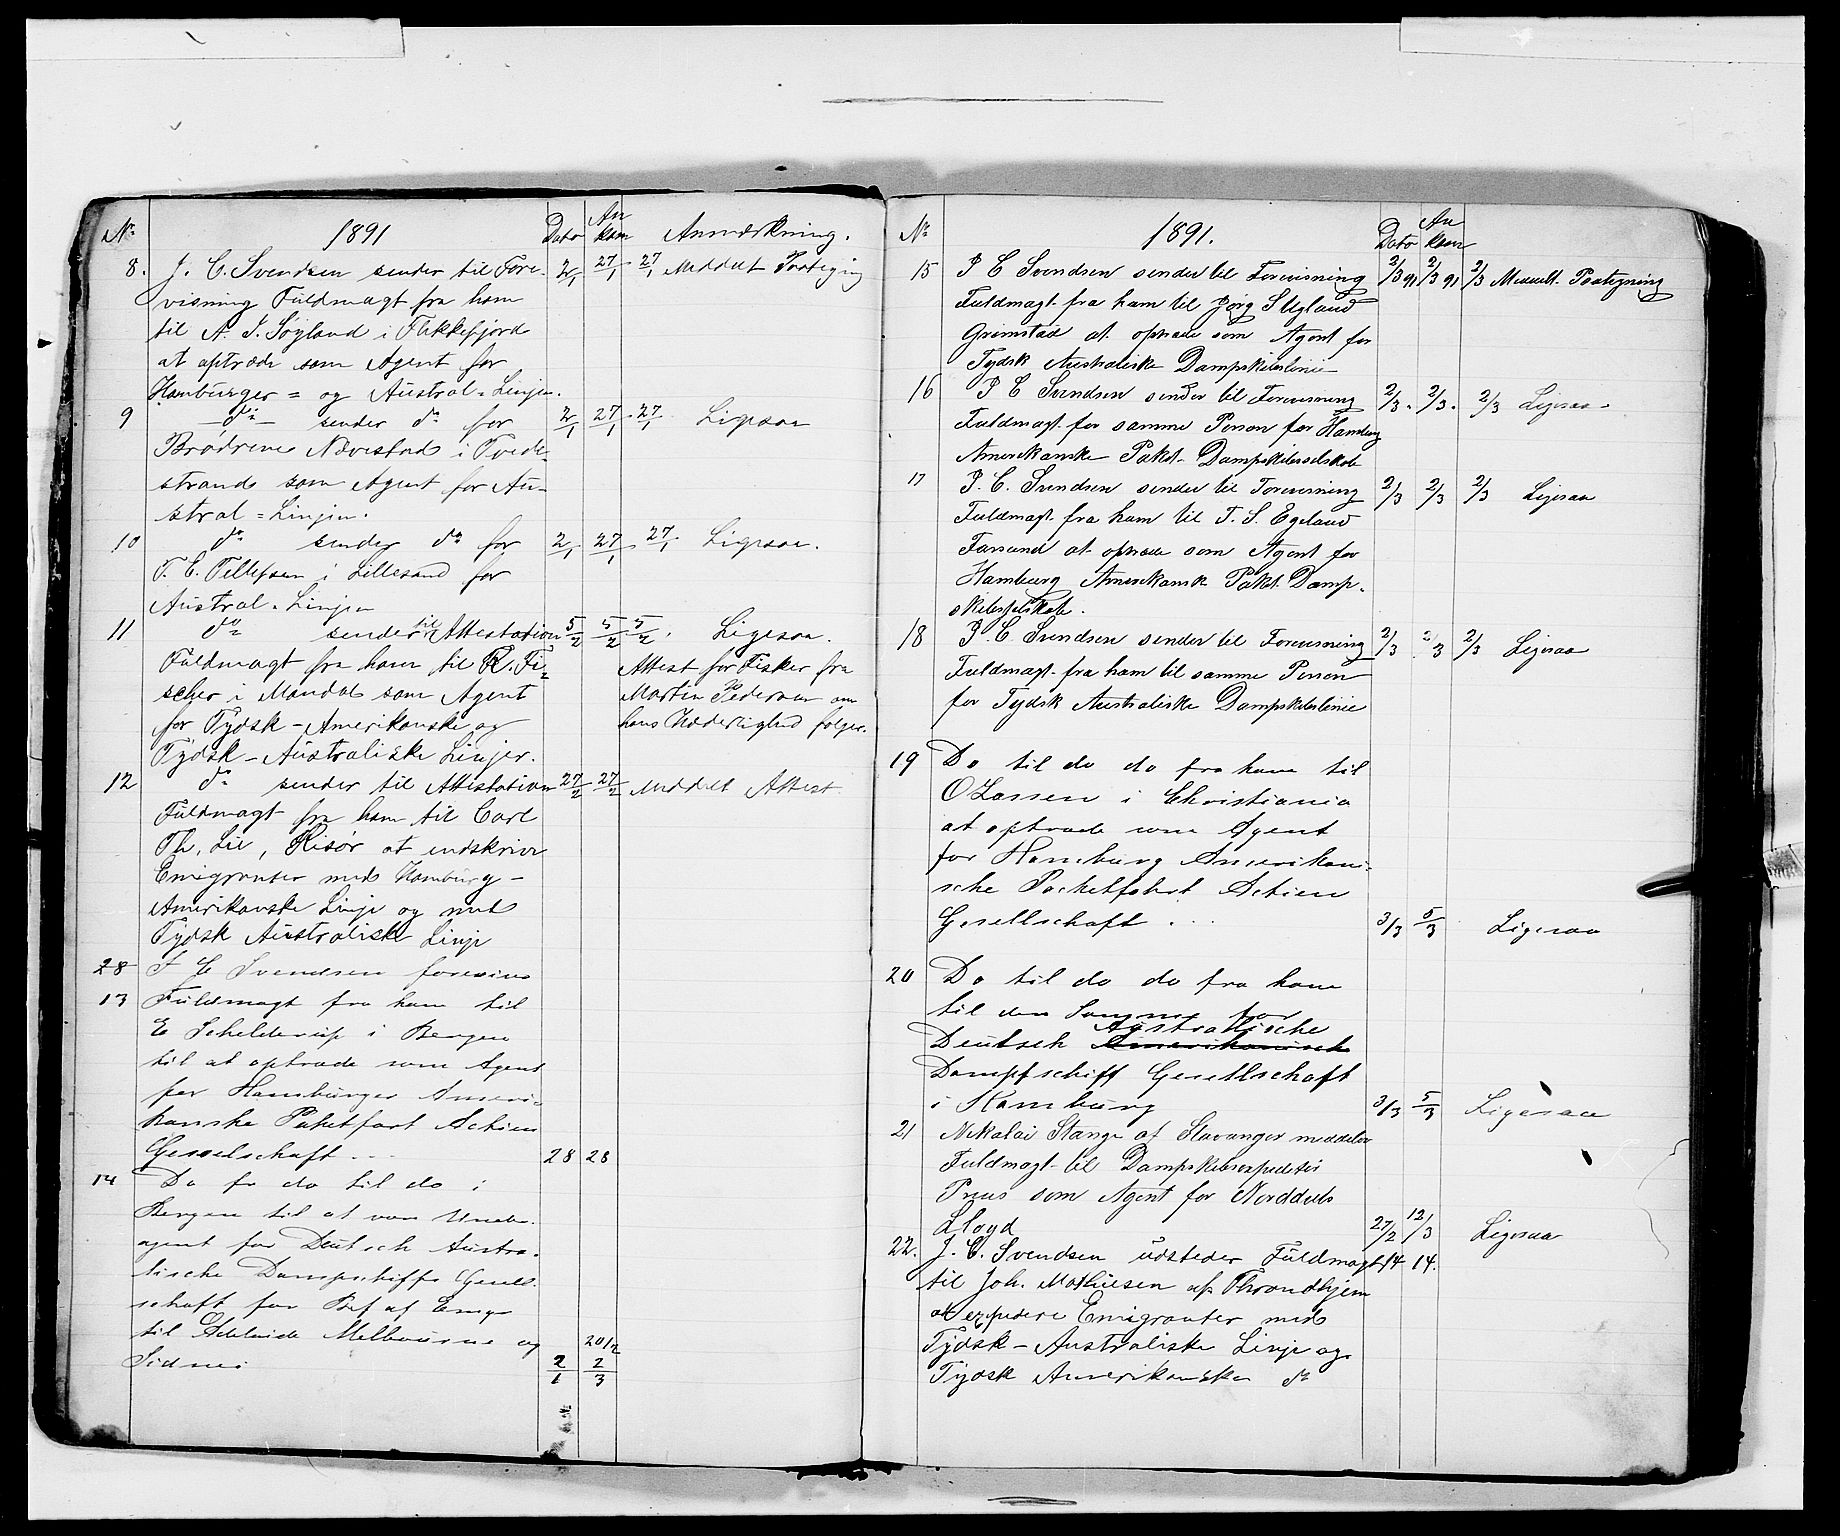 No 1891 Dato An kom Anmærkning.
8. J. C. Svendsen sender til Fore- 2/1 27/1 27/1 Meddelt Paategng
visning Fuldmagt fra ham
til A. I. Søyland i Flekkefjord
at optræde som Agent for
Hamburger = og Austral = Linjen.
9 do sender do for 2/1 27/1 27/1 Ligesaa
Brødrene Nævestad i Tvede-
strand som Agent for Au-
stral = Linjen.
10 do sender do for 2/1 27/1 27/1 Ligesaa.
T. E. Tellefsen i Lillesand for
Austral = Linjen
11 do sender til Attestation 5/2 5/2 5/2. Ligesaa.
Fuldmagt fra ham til R. Fi- Attest for Fisker fra
scher i Mandal som Agent Martin Pedersen om
for Tydsk - Amerikanske og hans Hæderlighed følger.
Tydsk - Australiske Linjer.
12 do sender til Attestation 27/2 27/2 Meddelt Attest
Fuldmagt fra ham til Carl
Th. Lie, Risør at indskrive
Emigranter med Hamburg -
Amerikanske Linje og med
Tydsk Australiske Linje
28 J C Svendsen forevise
13 Fuldmagt fra ham til
E Schelderup i Bergen
til at optræde som Agent
for Hamburger Ameri-
kanske Paketfart Actien
Gesselschaft - - - 28 28
14 Do fr do til do i
Bergen til at være Under-
agent for Deutsch Austra-
lische Dampschiffs Gesell-
schaft for Bef af Emgr
til Adelaide Melbourne og 20/2
Sidnei 2/1 2/3
No 1891. Dato An kom
15 J C Svendsen sender til Forevisning 2/3 91 2/3 91 2/3 Meddelt Paategning
Fuldmagt fra ham til Jørg S Ugland
Grimstad at optræde som Agent for
Tydsk Australiske Dampskibslinie
16 J C Svendsen sender til Forevisning 2/3. 2/3. 2/3 Ligesaa
Fuldmagt for samme Person for Hamburg
Amerikanske Pakt. Dampskibsselskab
17 J. C. Svendsen sender til Forevisning 2/3 2/3 2/3 Ligesaa
Fuldmagt fra ham til T. S. Egeland
Farsund at optræde som Agent for
Hamburg Amerikansk Pakt. Damp-
skibsselskab.
18 J. C. Svendsen sender til Forevisning 2/3 2/3 2/3 Ligesaa
Fuldmagt fra ham til samme Person
for Tydsk Australiske Dampskibslinie
19 Do til do do fra ham til
O Larsen i Christiania
at optræde som Agent
for Hamburg Amerikani-
sche Packetfahrt Actien
Gesellschaft . . . 3/3 5/3 Ligesaa
20 Do til do do fra ham
til den Samme for
Australische
Deutsch Amerikanisch
Dampfschiff Gesellschaft
i Hamburg 3/3 5/3 Ligesaa
21 Nikolai Stange af Stavanger meddeler
Fuldmagt til Dampskibsexpeditør
som Agent for Norddeuts
Lloyd 27/2 12/3 Ligesaa
22. J. C. Svendsen udsteder Fuldmagt 14 14.
til Joh. Mathiesen af Throndhjem
at expedere Emigranter med
Tydsk - Australiske Linje og
Tydsk Amerikanske do